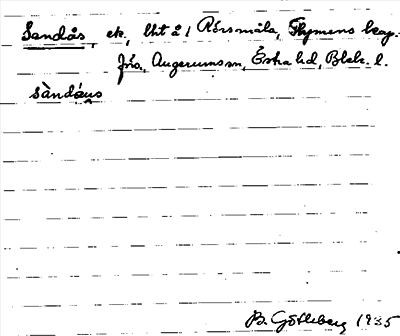 Sandås, ek, lht å 1 Rörsmåla, Flymens kap-
frs, Augerums sn, Östra hd, Blek. l.
sàndáus
B. Götlberg 1935